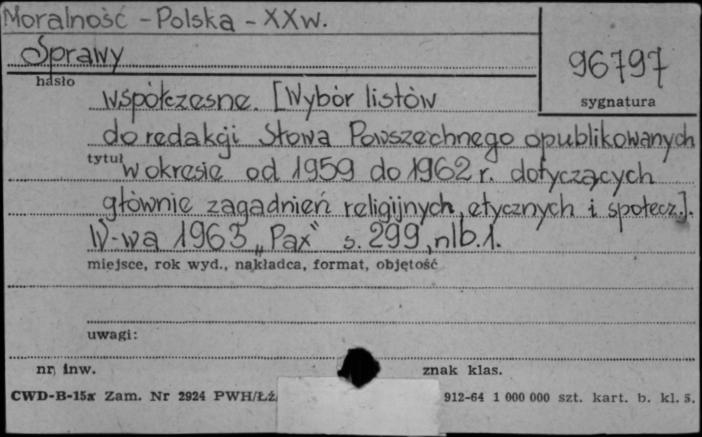 Moralność - Polska - XX w.
Sprawy
96797
hasło
sygnatura
współczesne. [Wybór listów
do redakcji Słowa Powszechnego opublikowanych
tytuł w okresie od 1959 do 1962 r. dotyczących
głównie zagadnień religijnych, etycznych i społecz.].
W-wa 1963 „Pax" s. 299, nlb. 1.
miejsce, rok wyd., nakładca, format, objętość
uwagi:
nr. inw. znak klas.
CWD-B-15x Zam. Nr 2924 PWH/Łż 912-64 1 000 000 szt. kart. b. kl. 5.